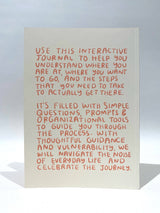 USE THIS INTERACTIVE
JOURNAL TO HELP YOU
UNDERSTAND WHERE YOU
ARE AT, WHERE YOU WANT
TO GO, AND THE STEPS
THAT YOU NEED TO TAKE
TO ACTUALLY GET THERE.
IT'S FILLED WITH SIMPLE
QUESTIONS, PROMPTS &
ORGANIZATIONAL TOOLS
TO GUIDE YOU THROUGH
THE PROCESS. WITH
THOUGHTFUL GUIDANCE
AND VULNERABILITY, WE
WILL NAVIGATE THE NOISE
OF EVERYDAY LIFE AND
CELEBRATE THE JOURNEY.